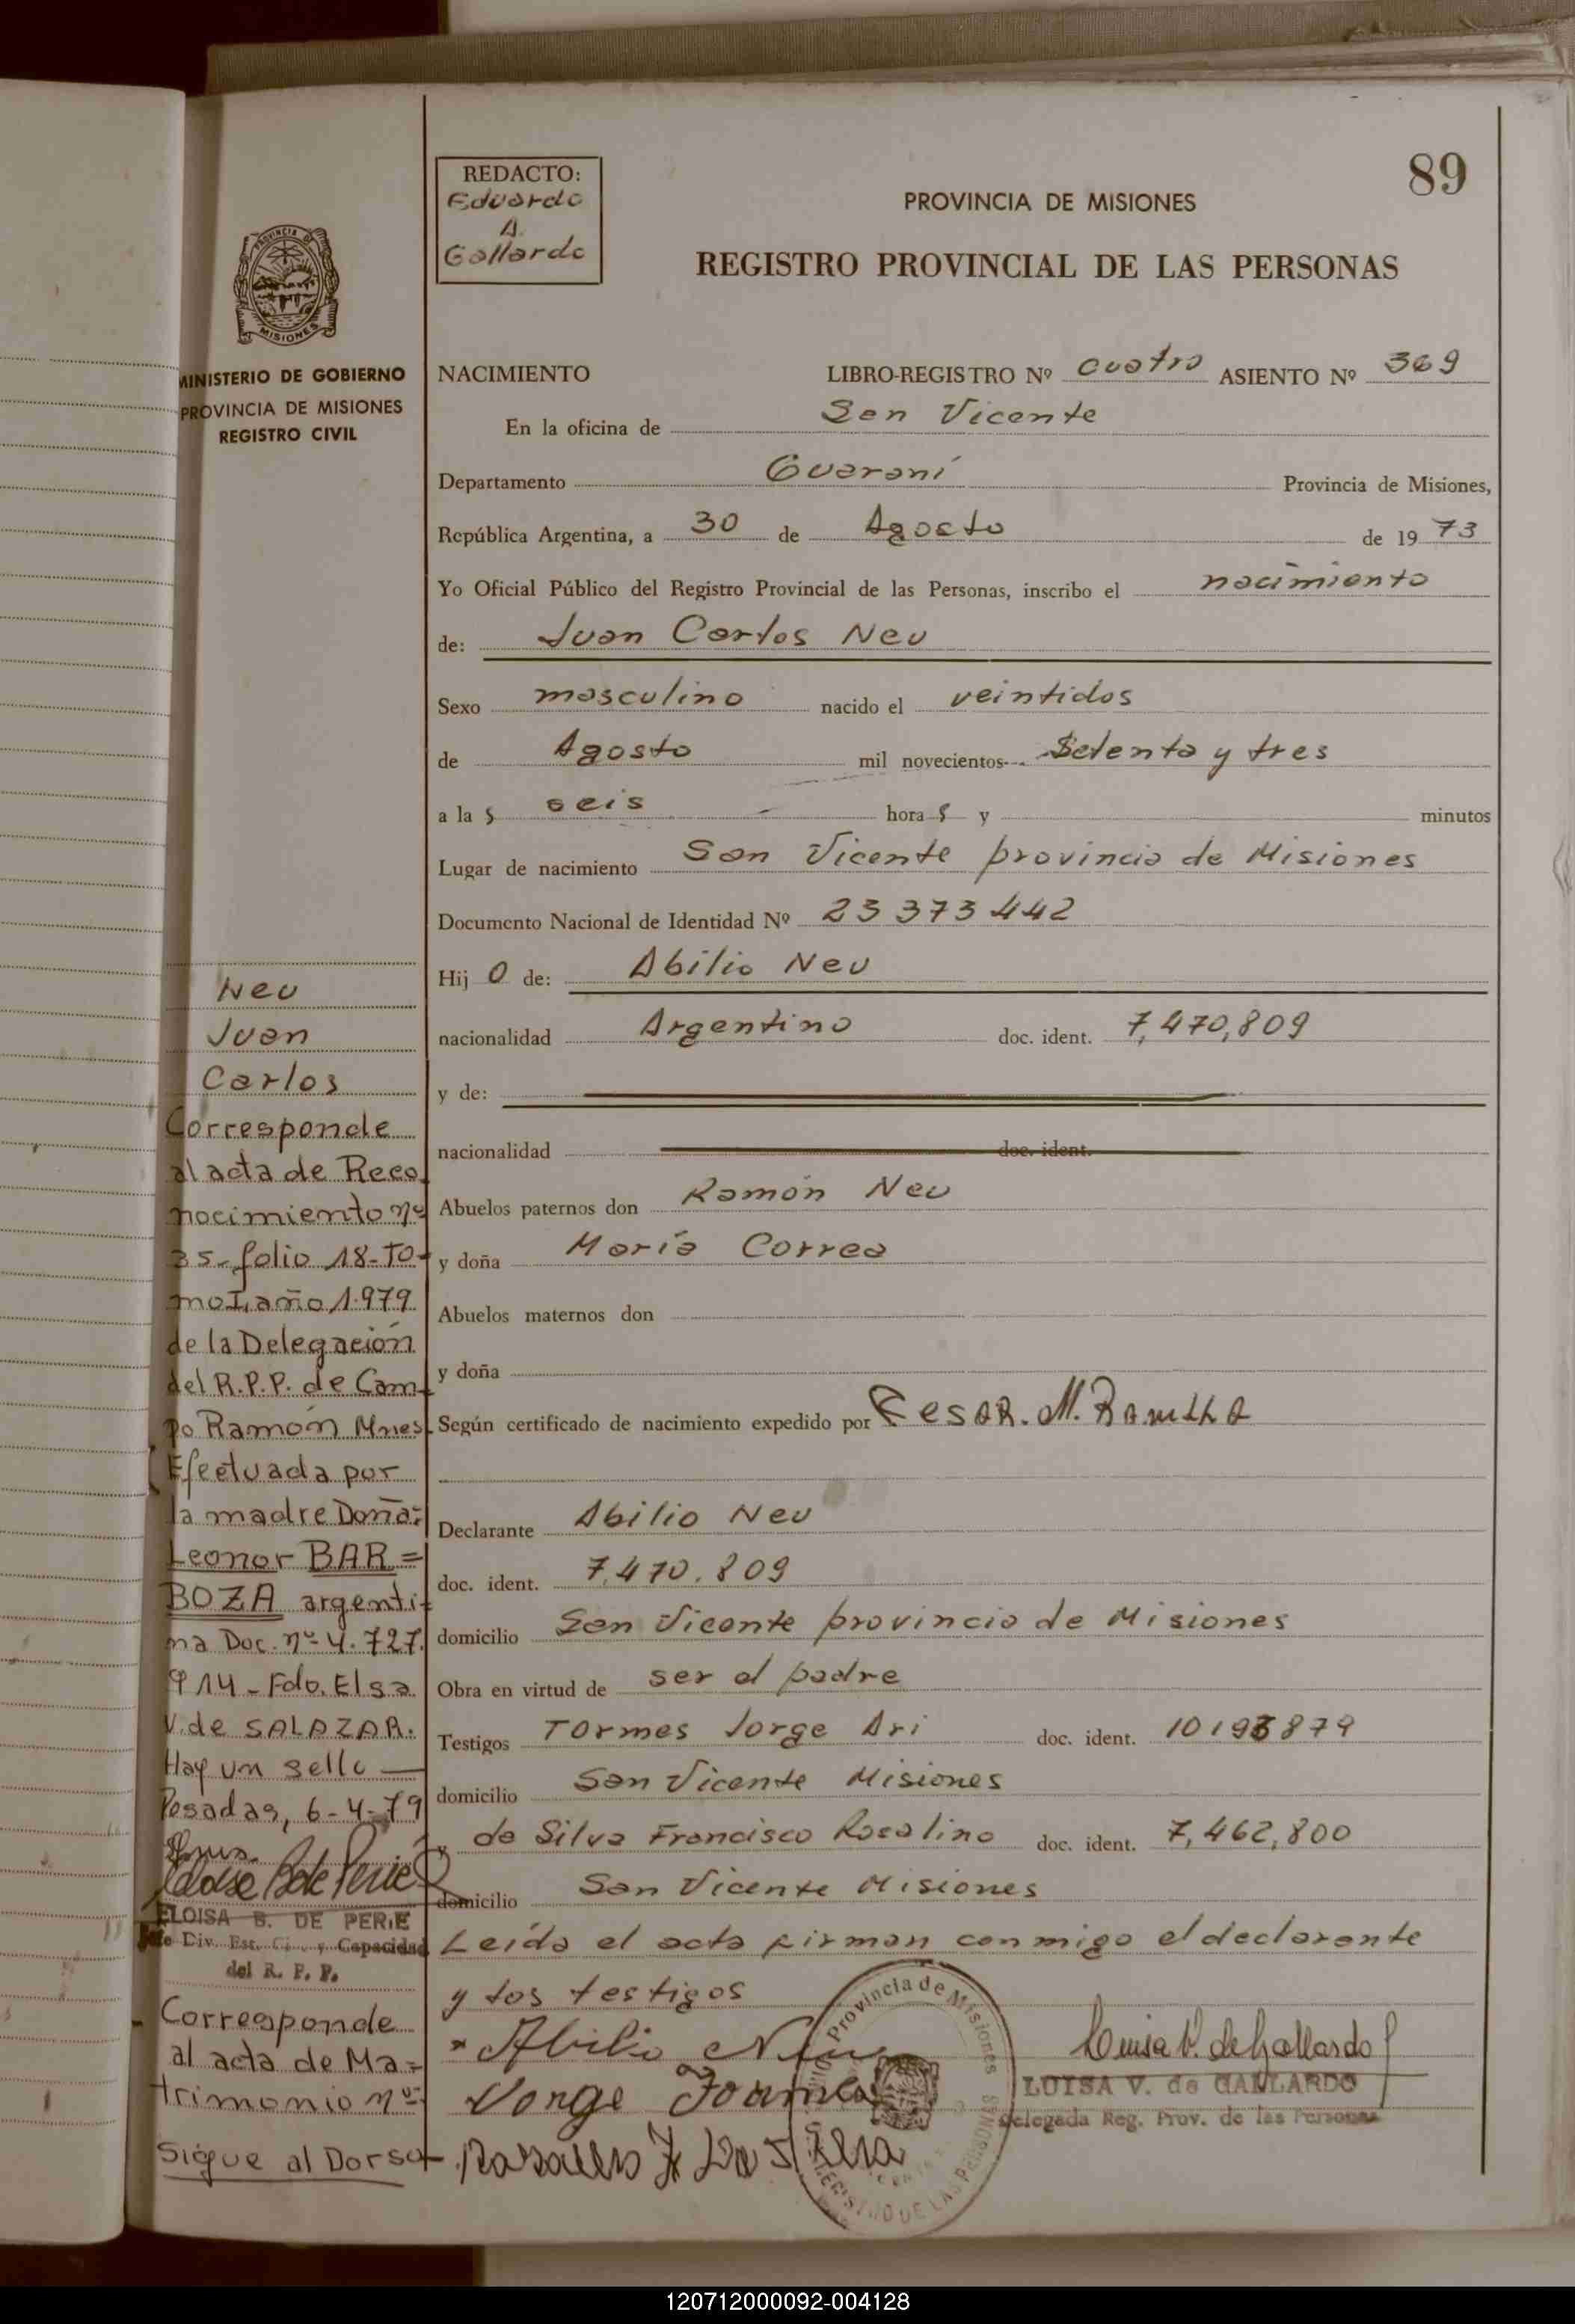 89
REDACTO:
Eduardo
A.
Gallardo
PROVINCIA DE MISIONES
REGISTRO PROVINCIAL DE LAS PERSONAS
PROVINCIA DE
MISIONES
MINISTERIO DE GOBIERNO
PROVINCIA DE MISIONES
REGISTRO CIVIL
NACIMIENTO LIBRO-REGISTRO Nº cuatro ASIENTO Nº 369
En la oficina de San Vicente
Departamento Guaraní Provincia de Misiones,
República Argentina, a 30 de Agosto de 19 73
Yo Oficial Público del Registro Provincial de las Personas, inscribo el nacimiento
de: Juan Carlos Neu
Sexo masculino nacido el veintidos
de Agosto mil novecientos Setenta y tres
a la s seis hora s y minutos
Lugar de nacimiento San Vicente provincia de Misiones
Documento Nacional de Identidad Nº 23 373 442
Hij o de: Abilio Neu
nacionalidad Argentino doc. ident. 7,470,809
y de:
nacionalidad doc. ident.
Abuelos paternos don Ramón Neu
y doña María Correa
Abuelos maternos don
y doña
Según certificado de nacimiento expedido por Cesar. M.
Declarante Abilio Neu
doc. ident. 7,470.809
domicilio San Vicente provincia de Misiones
Obra en virtud de ser el padre
Testigos Tormes Jorge Ari doc. ident. 10193879
domicilio San Vicente Misiones
y da Silva Francisco Rosalino doc. ident. 7,462,800
domicilio San Vicente Misiones
Leída el acta firman conmigo el declarante
y los testigos
Abilio Neu
Jorge
Da Silva
Provincia de Misiones
REGISTRO DE LAS PERSONAS
Luisa V. de Gallardo
LUISA V. de GALLARDO
Delegada Reg. Prov. de las Personas
Neu
Juan
Carlos
Corresponde
al acta de Reco
nocimiento nº
35-folio 18-To-
mo I, año 1.979
de la Delegación
del R.P.P. de Cam-
po Ramón Mnes.
Efectuada por
la madre Doña:
Leonor BAR=
BOZA argenti-
na Doc. nº 4.727.
914-Fdo. Elsa
V. de SALAZAR.
Hay un sello —
Posadas, 6-4-79
ELOISA B. DE PERIE
Jefe Div. Est. Civ. y Capacidad
del R. P. P.
- Corresponde
al acta de Ma=
trimonio nº
Sigue al Dorso
120712000092-004128